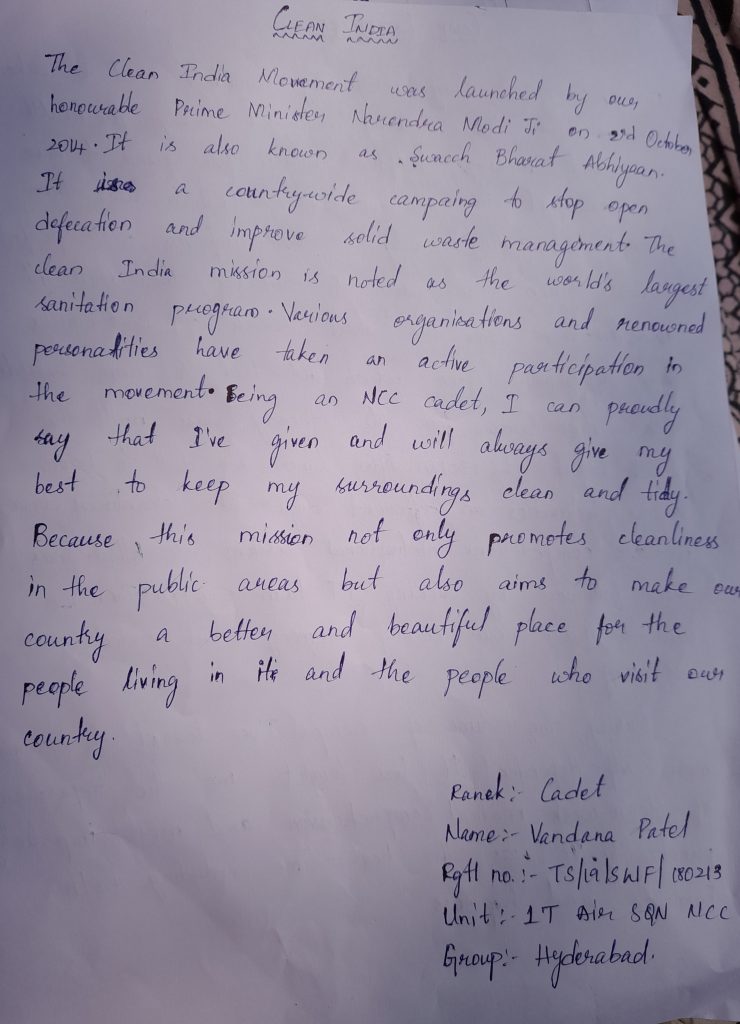 CLEAN INDIA
The Clean India Movement was launched by our
honourable Prime Minister Narendra Modi Ji on 2rd October
2014. It is also known as Swacch Bharat Abhiyaan.
It is a country-wide campaing to stop open
defecation and improve solid waste management. The
clean India mission is noted as the world's largest
sanitation program. Various organisations and renowned
personalities have taken an active participation in
the movement. Being an NCC cadet, I can proudly
say that I've given and will always give my
best to keep my surroundings clean and tidy.
Because, this mission not only promotes cleanliness
in the public areas but also aims to make our
country a better and beautiful place for the
people living in it and the people who visit our
country.
Ranek:- Cadet
Name:- Vandana Patel
Rgtl no.:- TS/19/SWF/180213
Unit:- 1T Air SQN NCC
Group:- Hyderabad.